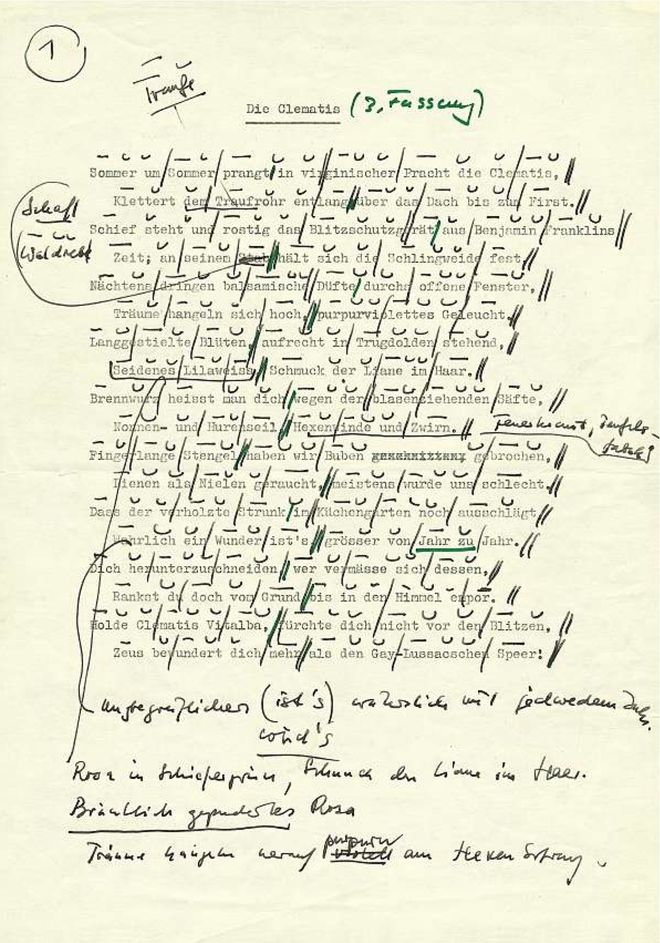 1
Traufe
Die Clematis (3. Fassung)
Sommer um Sommer prangt in virginischer Pracht die Clematis,
Klettert dem Traufrohr entlang über das Dach bis zum First.
Schief steht und rostig das Blitzschutzgerät aus Benjamin Franklins
Schaft
Waldrebe
Zeit; an seinem Stab hält sich die Schlingweide fest.
Nächtens dringen balsamische Düfte durchs offene Fenster,
Träume hangeln sich hoch, purpurviolettes Geleucht.
Langgestielte Blüten, aufrecht in Trugdolden stehend,
Seidenes Lilaweiss, Schmuck der Liane im Haar.
Brennwurz heisst man dich wegen der blasenziehenden Säfte,
Nonnen- und Hurenseil, Hexenwinde und Zwirn. Feuerkraut, Teufels-
Fingerlange Stengel haben wir Buben gebrochen,
Dienen als Nielen geraucht, meistens wurde uns schlecht.
Dass der verholzte Strunk im Küchengarten noch ausschlägt,
Wahrlich ein Wunder ist's, grösser von Jahr zu Jahr.
Dich herunterzuschneiden, wer vermässe sich dessen,
Rankst du doch vom Grund bis in den Himmel empor.
Holde Clematis Vitalba, fürchte dich nicht vor den Blitzen,
Zeus bewundert dich mehr als den Gay-Lussacschen Speer!
Unbegreiflicher (ist's) mit jedwedem Jahr.
wird's
Rosa in Schiefergrün, Schmuck der Liane im Haar.
Bräutlich gepudertes Rosa
purpurn
Träume hangeln herauf violett am Hexen